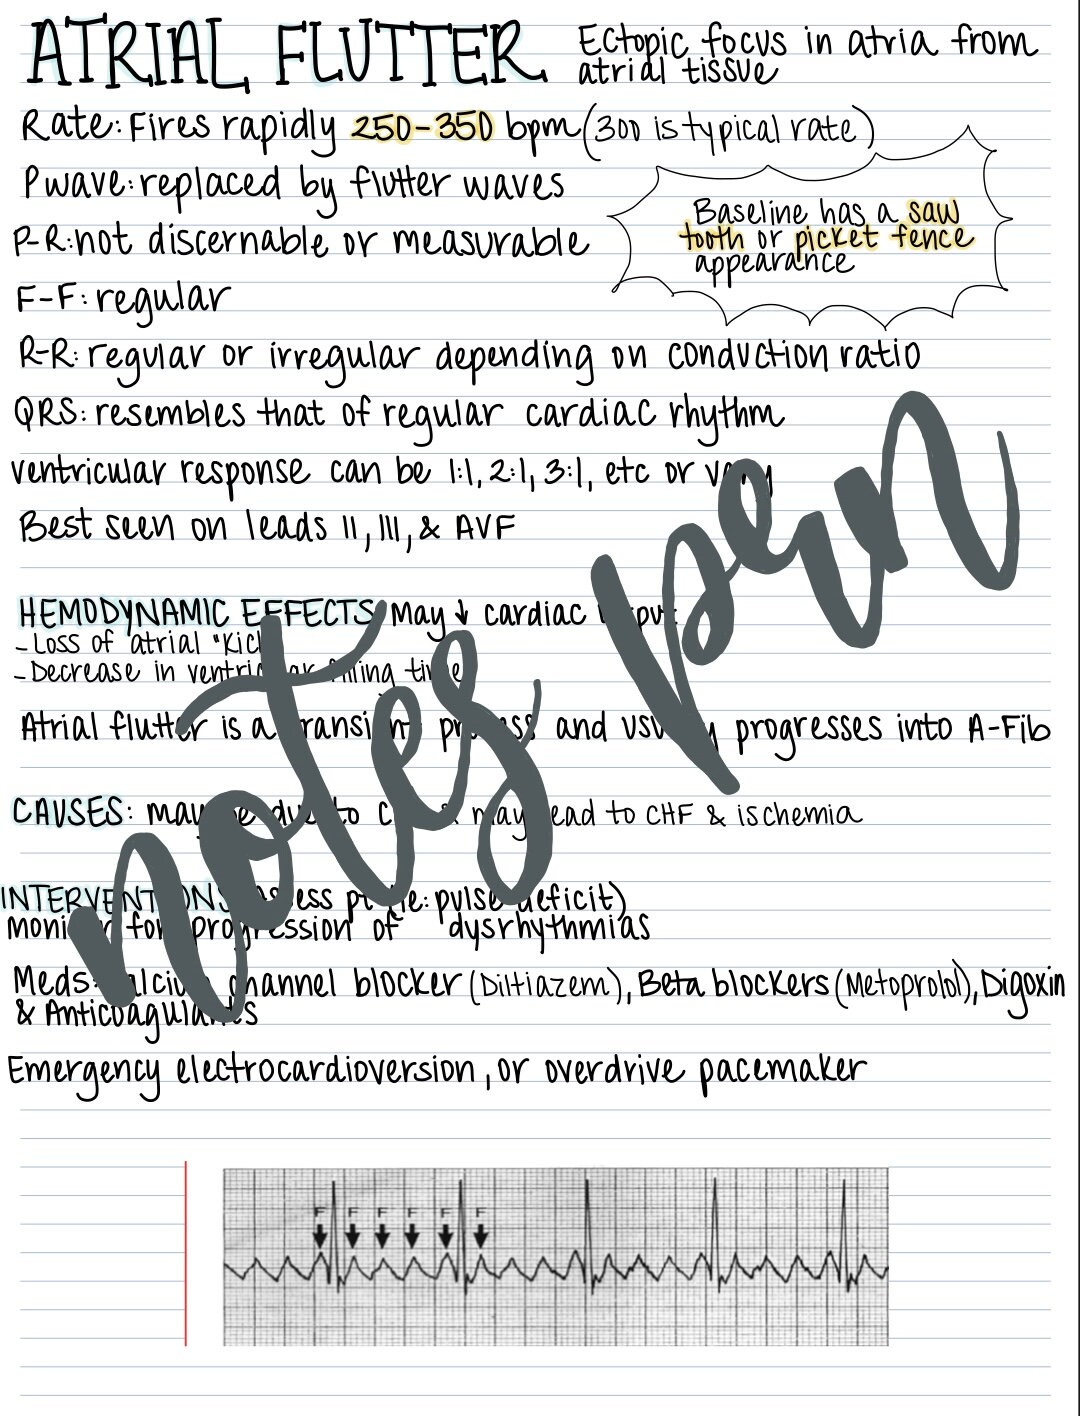 ATRIAL FLUTTER
Ectopic focus in atria from
atrial tissue
Rate: Fires rapidly 250-350 bpm (300 is typical rate)
P wave: replaced by flutter waves
Baseline has a saw
tooth or picket fence
appearance
P-R: not discernable or measurable
F-F: regular
R-R: regular or irregular depending on conduction ratio
QRS: resembles that of regular cardiac rhythm
ventricular response can be 1:1, 2:1, 3:1, etc or vary
Best seen on leads II, III, & AVF
HEMODYNAMIC EFFECTS: May ↓ cardiac output
- Loss of atrial "Kick"
- Decrease in ventricular filling time
Atrial flutter is a transient process and usually progresses into A-Fib
CAUSES: may be due to & may lead to CHF & ischemia
INTERVENTIONS assess pulse deficit)
monitor for progression of dysrhythmias
Meds: calcium channel blocker (Diltiazem), Beta blockers (Metoprolol), Digoxin
& Anticoagulantes
Emergency electrocardioversion, or overdrive pacemaker
F F F F F F
notes pen